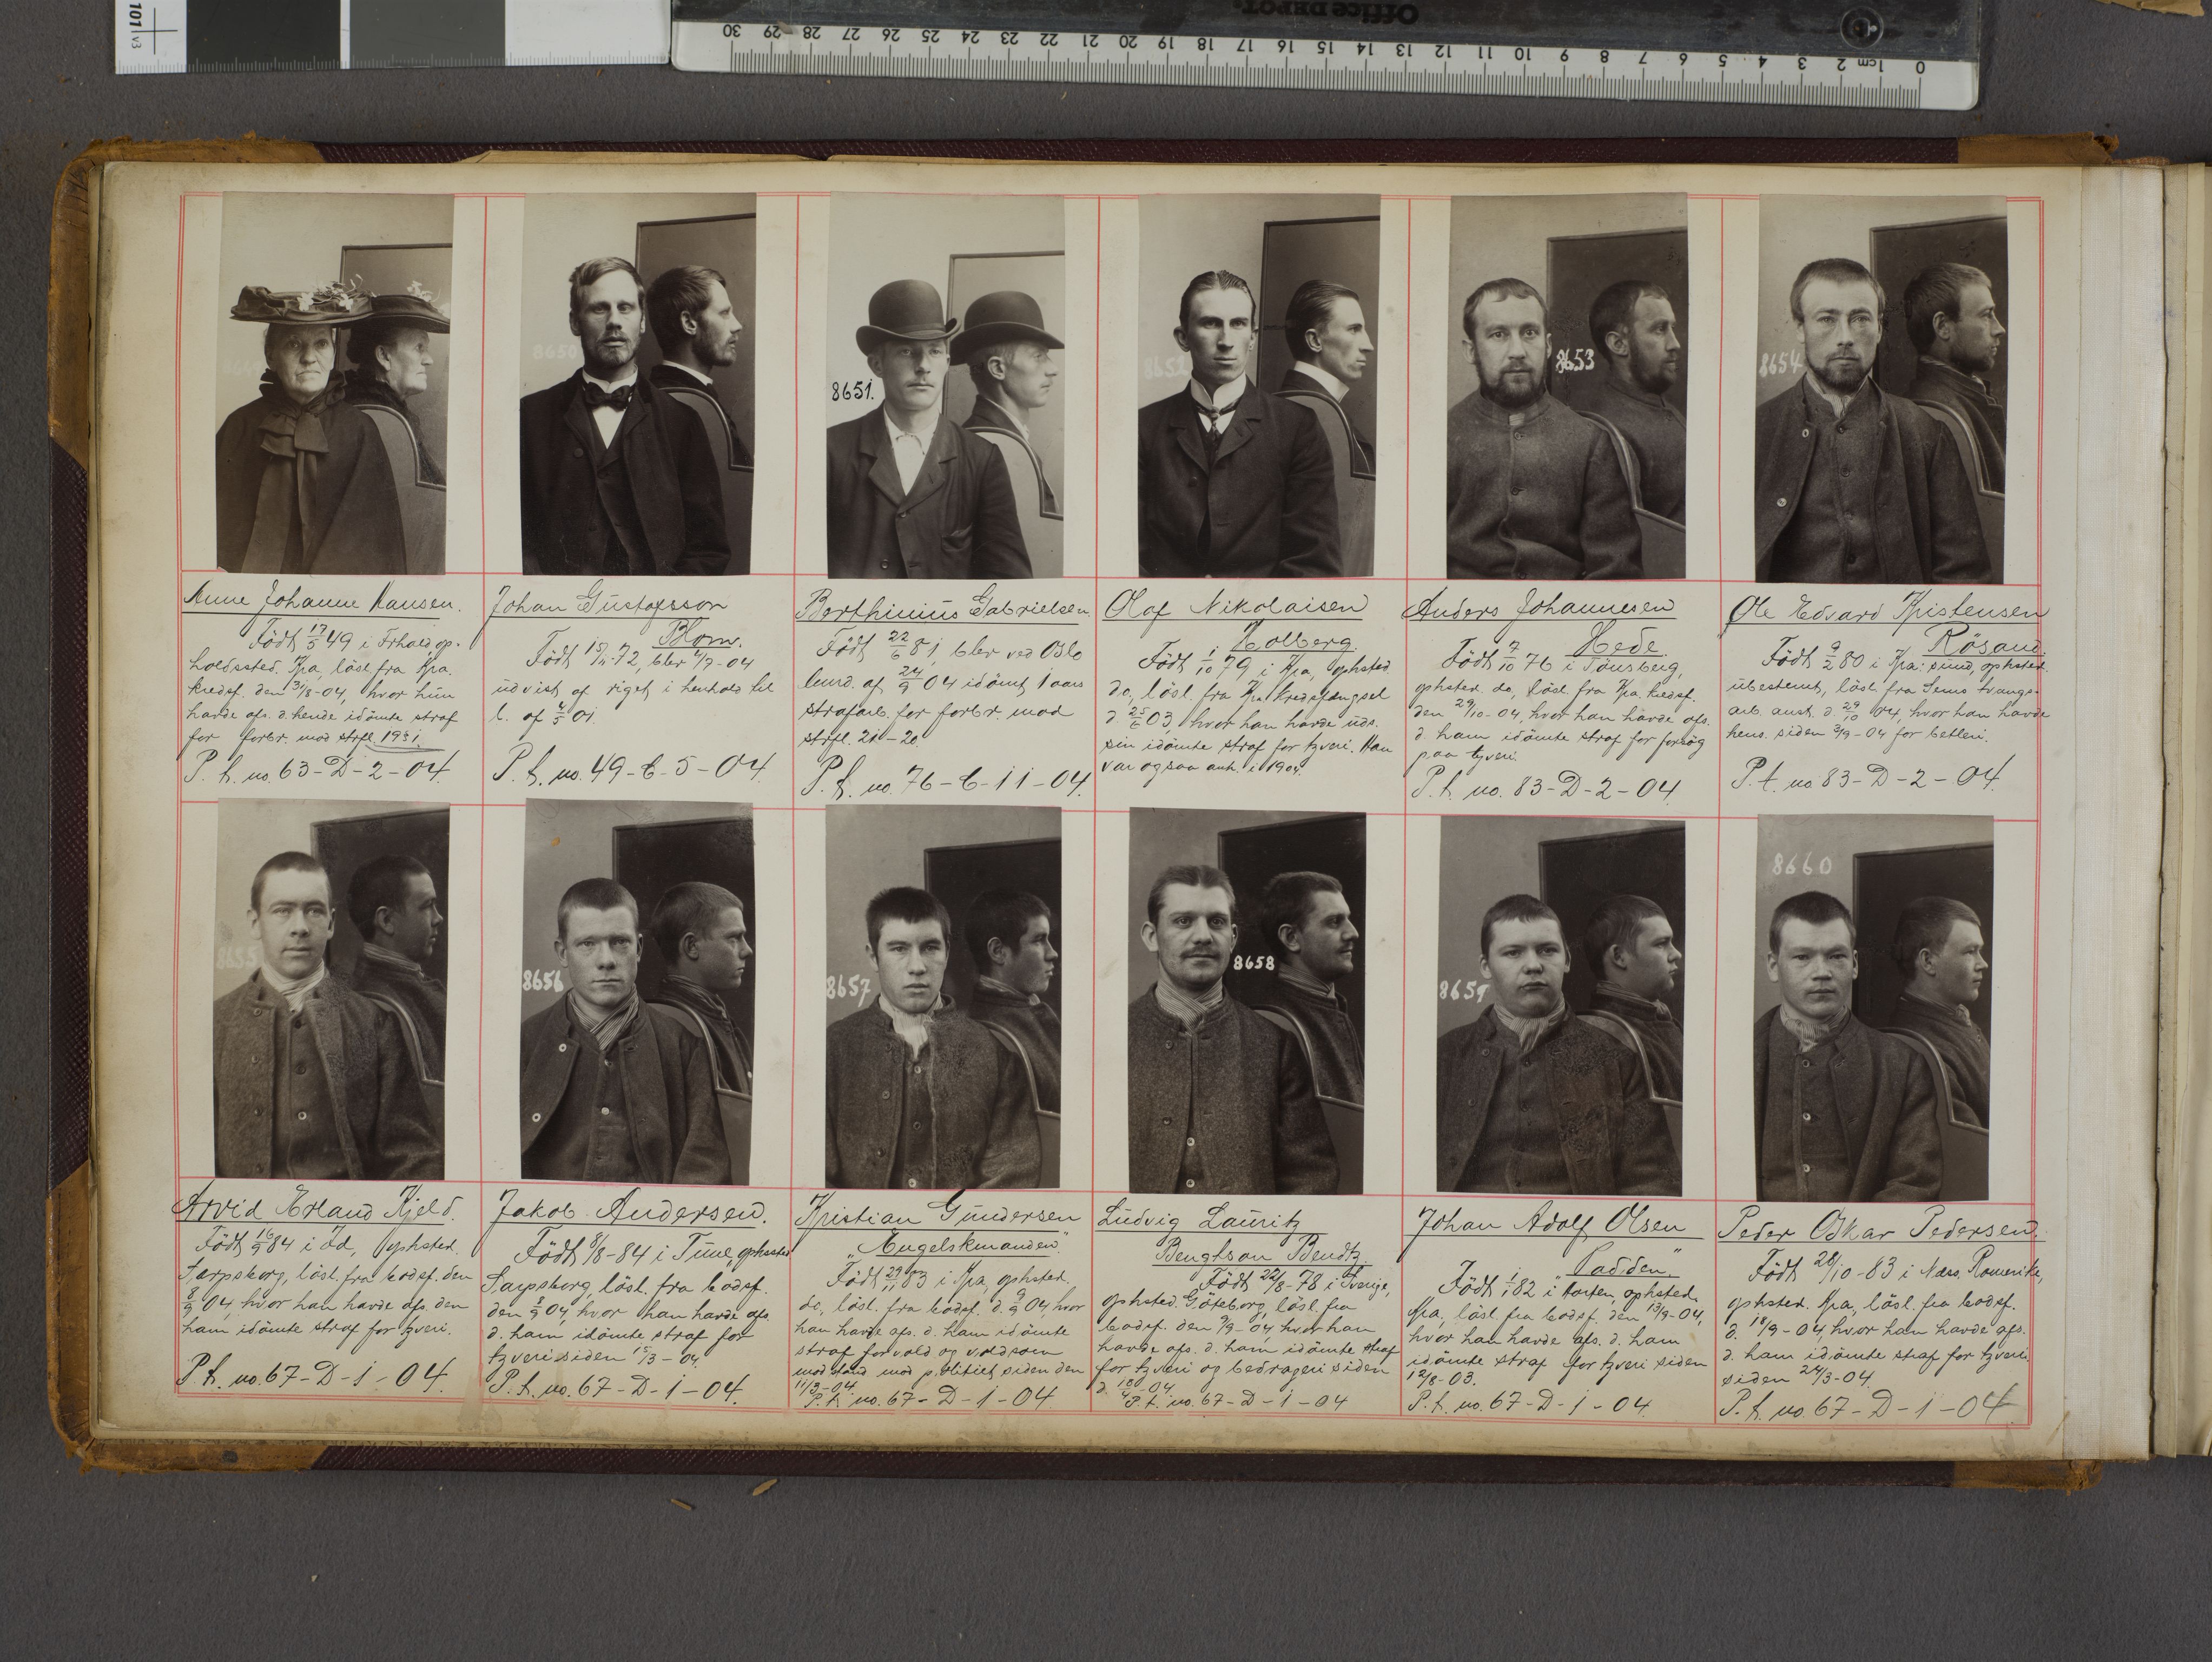 101 v3
Office DEPOT.
30 29 28 27 26 25 24 23 22 21 20 19 18 17 16 15 14 13 12 11 10 9 8 7 6 5 4 3 2 1cm 0
8650
8651.
8652
8653
8654
Anne Johanne Hansen.
Födt 17/5 49 i Frhald, op-
holdssted. Kra, lösl. fra Kra.
kredsf. den 31/8-04, hvor hun
havde afs. d. hende idömte straf
for forbr. mod strfl. 1931.
P. f. no. 63-D-2-04.
Johan Gustafsson
Blom.
Födt 15/11-72, blev 4/7-04
udvist af riget i henhold til
l. af 4/5 01.
P. f. no. 49-C-5-04.
Berthinius Gabrielsen.
Födt 22/6 81, blev ved Oslo
lmrd. af 24/9 04 idömt 1 aars
strafarb. for forbr. mod
strfl. 21-20.
P. f. no. 76-C-11-04.
Olaf Nikolaisen
Holberg.
Födt 1/10 79 i Kra, ophsted.
do, lösl. fra Kra kredsfængsel
d. 25/6 03, hvor han havde uds.
sin idömte straf for tyveri. Han
var ogsaa anh. i 1904.
Anders Johannesen
Hede.
Födt 7/10 76 i Tönsberg,
ophsted. do, lösl. fra Kra kredsf.
den 29/10-04, hvor han havde afs.
d. ham idömte straf for forsög
paa tyveri.
P. f. no. 83-D-2-04.
Ole Edvard Kristensen
Rösand.
Födt 9/2 80 i Kra.sund, ophsted.
ubestemt, lösl. fra Sems tvangs-
arb. anst. d. 29/10 04, hvor han havde
hens. siden 3/9-04 for betleri.
P. f. no. 83-D-2-04.
8655
8656
8657
8658
8659
8660
Arvid Erland Kjeld.
Födt 16/9 84 i Id, ophsted.
Sarpsborg, lösl. fra bodsf. den
8/9 04, hvor han havde afs. den
ham idömte straf for tyveri.
P. f. no. 67-D-1-04.
Jakob Andersen.
Födt 8/8-84 i Tune, ophsted
Sarpsborg, lösl. fra bodsf.
den 8/9 04, hvor han havde afs.
d. ham idömte straf for
tyveri siden 15/3-04.
P. f. no. 67-D-1-04.
Kristian Gundersen
"Engelskmanden".
Födt 29/11 83 i Kra, ophsted.
do, lösl. fra bodsf. d. 9/9 04, hvor
han havde afs. d. ham idömte
straf for vold og voldsom
modstand mod politiet siden den
11/3-04.
P. f. no. 67-D-1-04.
Ludvig Lauritz
Bengtson Bendtz.
Födt 22/8-78 i Sverige,
ophsted. Göteborg, lösl. fra
bodsf. den 9/9-04, hvor han
havde afs. d. ham idömte straf
for tyveri og bedrageri siden
P. f. no. 67-D-1-04
Johan Adolf Olsen
"Padden"
Födt 1/1 82 i Horten, ophsted.
Kra, lösl. fra bodsf. den 13/9-04,
hvor han havde afs. d. ham
idömte straf for tyveri siden
12/8-03.
P. f. no. 67-D-1-04.
Peder Oskar Pedersen.
Födt 28/10-83 i Næs, Romerike,
ophsted. Kra, lösl. fra bodsf.
d. 18/9-04, hvor han havde afs.
d. ham idömte straf for tyveri
siden 24/3-04.
P. f. no. 67-D-1-04